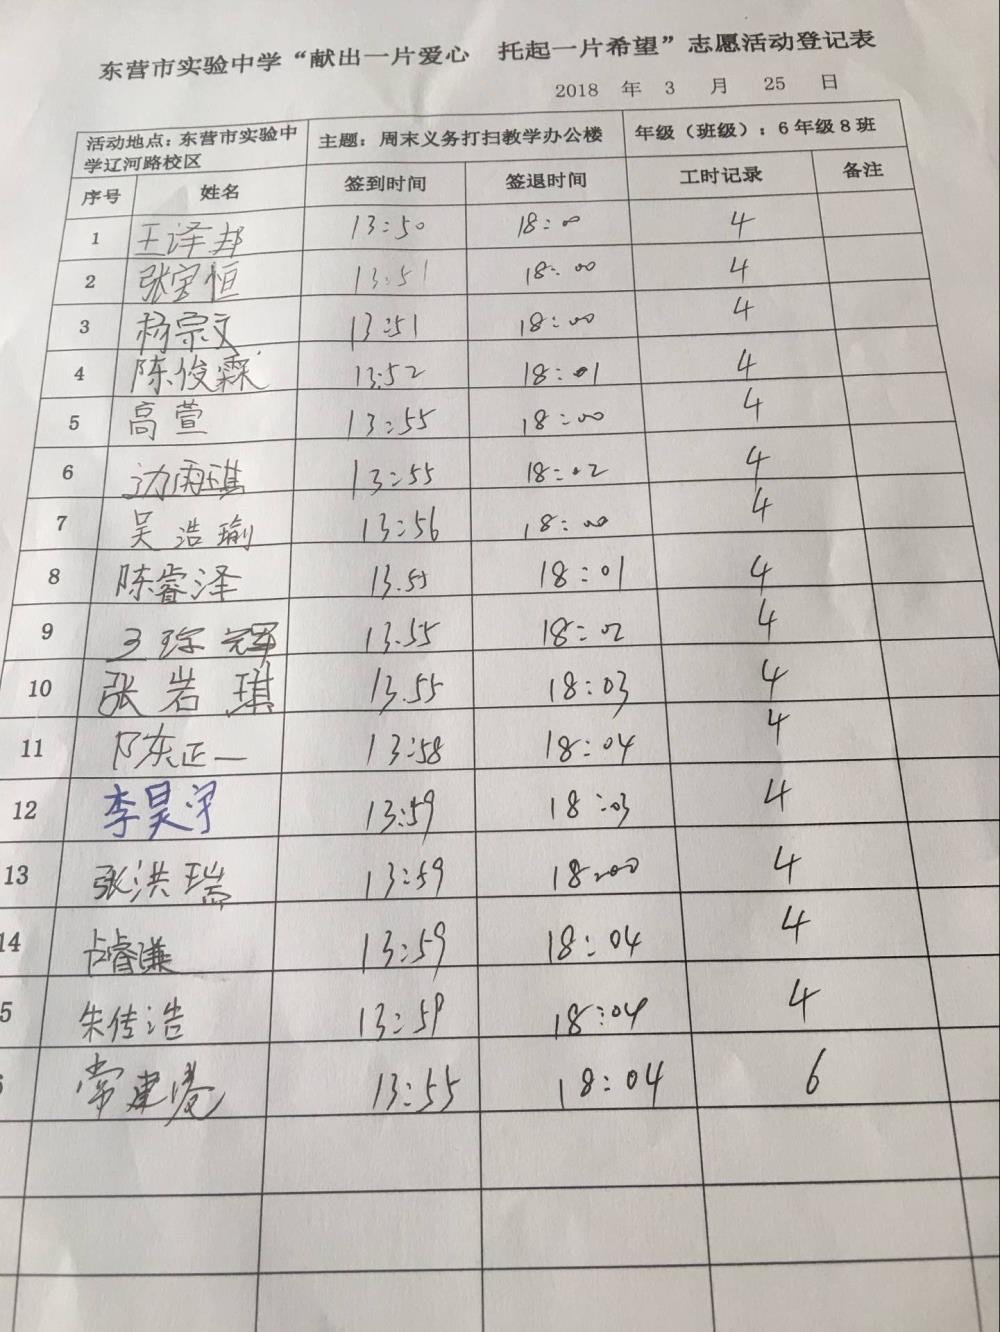 东营市实验中学“献出一片爱心 托起一片希望”志愿活动登记表
2018 年 3 月 25 日
活动地点：东营市实验中学辽河路校区 主题：周末义务打扫教学办公楼 年级（班级）：6年级8班
序号 姓名 签到时间 签退时间 工时记录 备注
1 王泽邦 13:50 18:00 4
2 张宝恒 13:51 18:00 4
3 杨宗文 13:51 18:00 4
4 陈俊霖 13:52 18:01 4
5 高萱 13:55 18:00 4
6 边雨琪 13:55 18:02 4
7 吴浩瑜 13:56 18:00 4
8 陈睿泽 13.55 18:01 4
9 王琮辉 13.55 18:02 4
10 张岩琪 13.55 18:03 4
11 陈正一 13:58 18:04 4
12 李昊宇 13:59 18:03 4
13 张洪瑞 13:59 18:00 4
14 占睿谦 13:59 18:04 4
5 朱传浩 13:59 18:04 4
常建 13:55 18:04 6